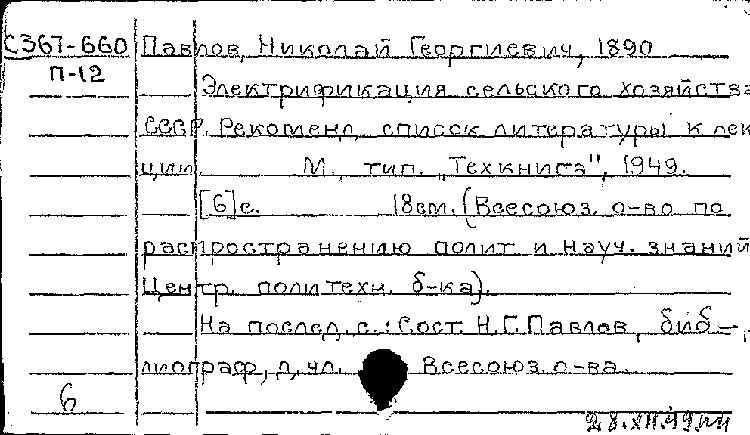 С367-660 Павлов, Николай Георгиевич, 1890
П-12
Электрификация сельского хозяйства
СССР. Рекоменд. список литературы к лек
ции. М., тип. "Техкнига", 1949.
[6]с. 18см. (Всесоюз. о-во по
распространению полит. и науч. знаний
Центр. политехн. б-ка).
На послед. с.: Сост. Н.Г. Павлов, биб-
лиограф, д. чл. Всесоюз. о-ва.
6
28.XII.49